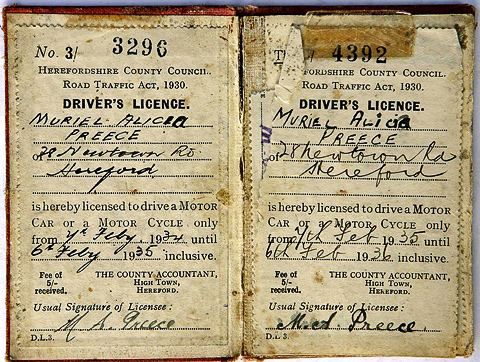 No. 3/ 3296
HEREFORDSHIRE COUNTY COUNCIL.
ROAD TRAFFIC ACT, 1930.
DRIVER'S LICENCE.
MURIEL ALICEA
PREECE
of 28 Newtown Rd
Hereford
is hereby licensed to drive a MOTOR
CAR or a MOTOR CYCLE only
from 7th Feby 1934 until
6th Feby 1935 inclusive.
Fee of
5/-
received.
THE COUNTY ACCOUNTANT,
HIGH TOWN,
HEREFORD.
Usual Signature of Licensee :
M. A. Preece
D.L.3.
4392
FORDSHIRE COUNTY COUNCIL.
ROAD TRAFFIC ACT, 1930.
DRIVER'S LICENCE.
MURIEL ALICEA
PREECE
of 28 Newtown Rd
Hereford
is hereby licensed to drive a MOTOR
CAR or a MOTOR CYCLE only
from 7th Feb 1935 until
6th Feb 1936 inclusive.
Fee of
5/-
received.
THE COUNTY ACCOUNTANT,
HIGH TOWN,
HEREFORD.
Usual Signature of Licensee :
M. A. Preece.
D.L.3.